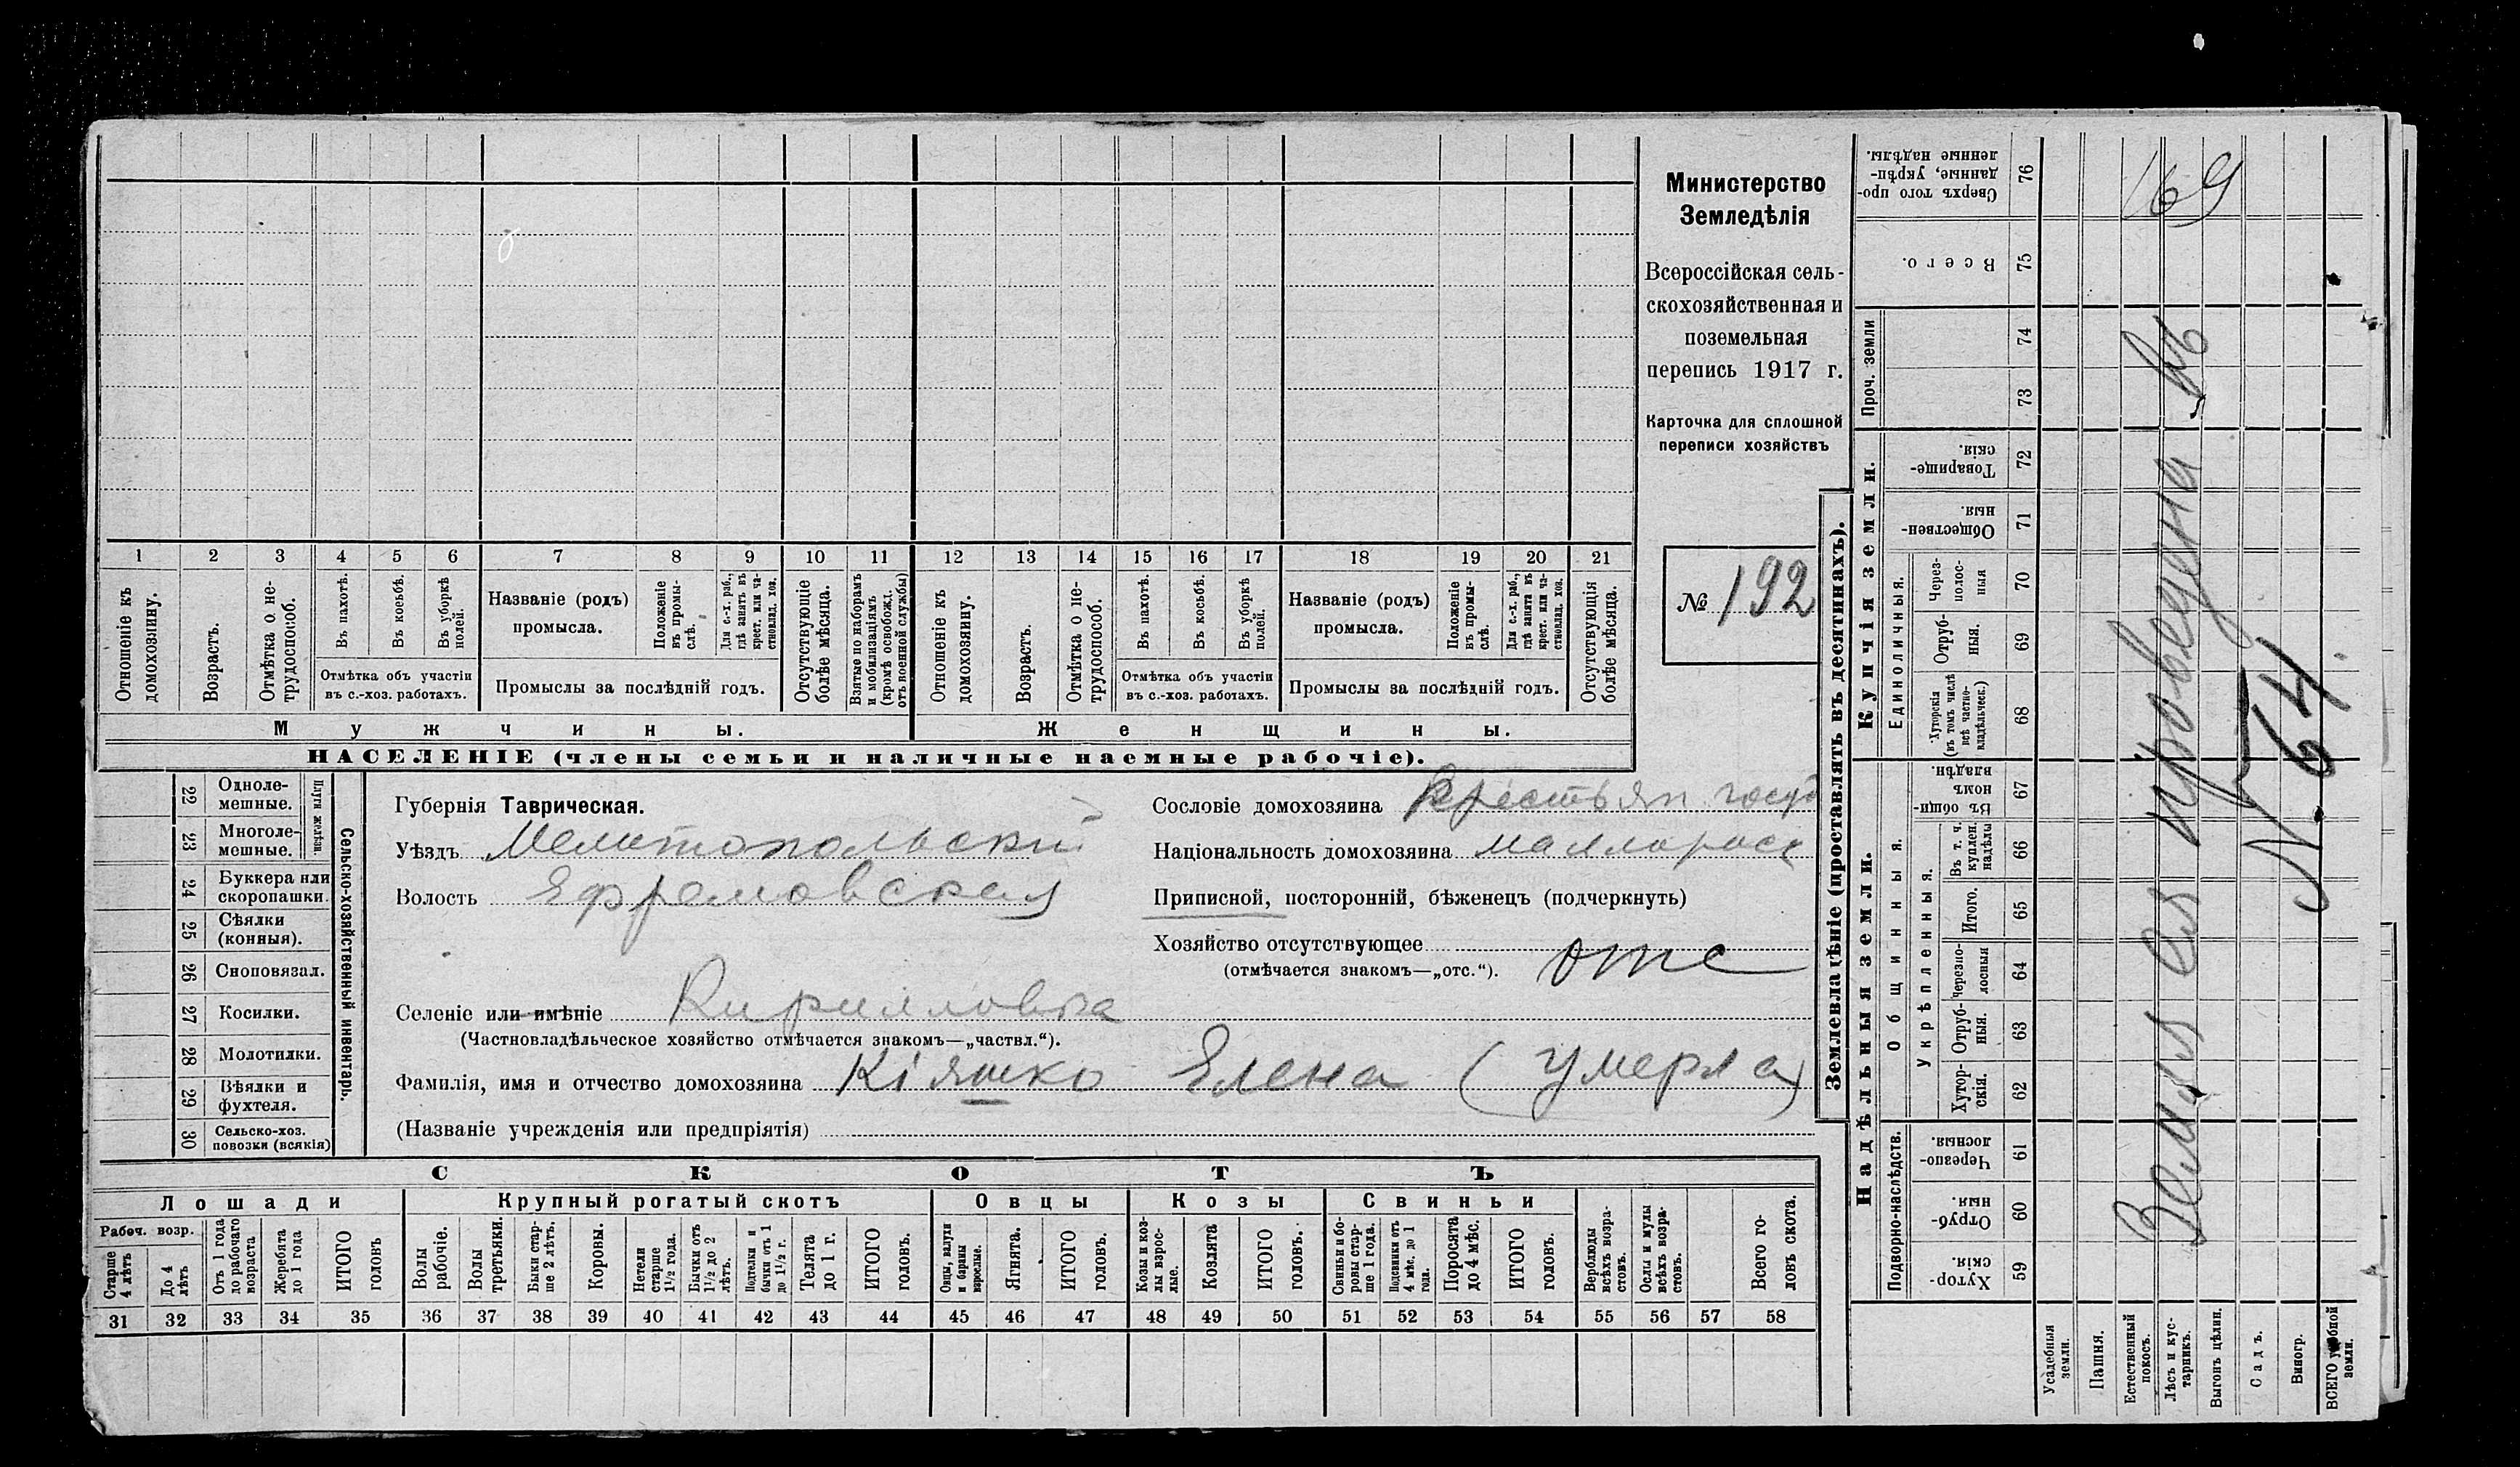 Министерство
Земледѣлія
Всероссійская сель-
скохозяйственная и
поземельная
перепись 1917 г.
Карточка для сплошной
переписи хозяйствъ
№ 192
1 2 3 4 5 6 7 8 9 10 11 12 13 14 15 16 17 18 19 20 21
Отношеніе къ домохозяину.
Возрастъ.
Отмѣтка о не-трудоспособ.
Въ пахотѣ.
Въ косьбѣ.
Въ уборкѣ полей.
Отмѣтка объ участіи
въ с.-хоз. работахъ.
Названіе (родъ)
промысла.
Положеніе въ промы-слѣ.
Для с.-х. раб., гдѣ занятъ въ крест. или ча-стновлад. хоз.
Промыслы за послѣдній годъ.
Отсутствующіе болѣе мѣсяца.
Взятые по наборамъ и мобилизаціямъ (кромѣ освобожд. отъ военной службы)
Отношеніе къ домохозяину.
Возрастъ.
Отмѣтка о не-трудоспособ.
Въ пахотѣ.
Въ косьбѣ.
Въ уборкѣ полей.
Отмѣтка объ участіи
въ с.-хоз. работахъ.
Названіе (родъ)
промысла.
Положеніе въ промы-слѣ.
Для с.-х. раб., гдѣ занята въ крест. или ча-стновлад. хоз.
Промыслы за послѣдній годъ.
Отсутствующія болѣе мѣсяца.
Мужчины. Женщины.
НАСЕЛЕНІЕ (члены семьи и наличные наемные рабочіе).
Сельско-хозяйственный инвентарь.
Плуги желѣзн.
22 Одноле-мешные.
23 Многоле-мешные.
24 Буккера или скоропашки.
25 Сѣялки (конныя).
26 Сноповязал.
27 Косилки.
28 Молотилки.
29 Вѣялки и фухтеля.
30 Сельско-хоз. повозки (всякія)
Губернія Таврическая.
Уѣздъ Мелитопольскій
Волость Ефремовская
Селеніе или имѣніе Кирилловка
(Частновладѣльческое хозяйство отмѣчается знакомъ—„частвл.“).
Фамилія, имя и отчество домохозяина Кіяшко Елена (умерла)
(Названіе учрежденія или предпріятія)
Сословіе домохозяина Крестьян. госуд
Національность домохозяина маллоросс
Приписной, посторонній, бѣженецъ (подчеркнуть)
Хозяйство отсутствующее отс
(отмѣчается знакомъ—„отс.“).
СКОТЪ
Лошади Крупный рогатый скотъ Овцы Козы Свиньи
Рабоч. возр.
Старше 4 лѣтъ
До 4 лѣтъ
Отъ 1 года до рабочаго возраста
Жеребята до 1 года
ИТОГО головъ
Волы рабочіе.
Волы третьяки.
Быки стар-ше 2 лѣтъ.
Коровы.
Нетели старше 1½ года.
Бычки отъ 1½ до 2 лѣтъ.
Подтелки и бычки отъ 1 до 1½ г.
Телята до 1 г.
ИТОГО головъ.
Овцы, валухи и бараны взрослые.
Ягнята.
ИТОГО головъ.
Козы и коз-лы взрос-лые.
Козлята
ИТОГО головъ.
Свиньи и бо-ровы стар-ше 1 года.
Подсвинки отъ 4 мѣс. до 1 года.
Поросята до 4 мѣс.
ИТОГО головъ.
Верблюды всѣхъ возра-стовъ.
Ослы и мулы всѣхъ возра-стовъ.
Всего го-ловъ скота.
31 32 33 34 35 36 37 38 39 40 41 42 43 44 45 46 47 48 49 50 51 52 53 54 55 56 57 58
Землевладѣніе (проставлять въ десятинахъ).
Надѣльныя земли.
Купчія земли.
Проч. земли
Подворно-наслѣдств.
Общинныя.
Укрѣпленныя.
Единоличныя.
59 Хутор-скія.
60 Отруб-ныя.
61 Черезпо-лосныя
62 Хутор-скія.
63 Отруб-ныя.
64 Черезпо-лосныя
65 Итого.
66 Въ т. ч. куплен. надѣлы
67 Въ общин-номъ владѣн.
68 Хуторскія (въ томъ числѣ всѣ частно-владѣльческ.)
69 Отруб-ныя.
70 Через-полос-ныя
71 Обществен-ныя.
72 Товарище-скія.
73
74
75 Всего.
76 Сверхъ того про-данные, укрѣп-ленные надѣлы.
Усадебныя земли.
Пашня.
Естественный покосъ.
Лѣсъ и кус-тарникъ.
Выгонъ цѣлин.
Садъ.
Виногр.
ВСЕГО удобной земли.
Земля ея проведена
№ 64
169